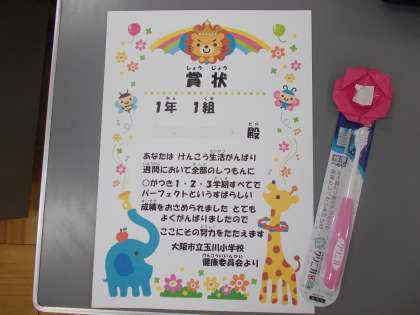 賞状
しょうじょう
1年 1組
殿
あなたは けんこう生活がんばり
週間において全部のしつもんに
○がつき1・2・3学期すべてで
パーフェクトというすばらしい
成績をおさめられました とても
よくがんばりましたので
ここにその努力をたたえます
大阪市立玉川小学校
健康委員会より